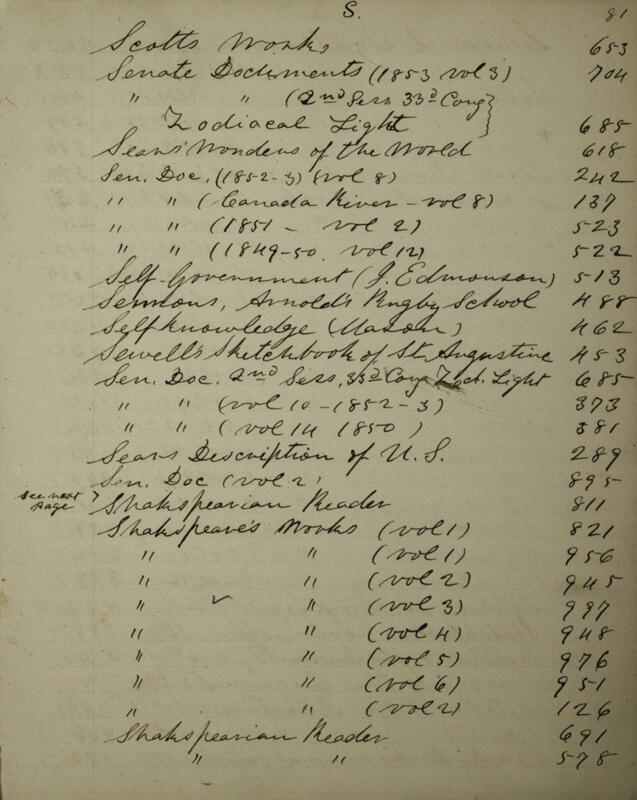 S. 81
Scotts Works 653
Senate Documents (1853 vol 3) 704
" " (2nd Sess 33d Cong}
Zodiacal Light} 685
Sears' Wonders of the World 618
Sen. Doc. (1852-3) (vol 8) 242
" " (Canada River - vol 8) 137
" " (1851 - vol 2) 523
" " (1849-50. vol 12) 522
Self-Government (J. Edmonson) 513
Sermons, Arnold's Rugby School 488
Self-Knowledge (Mason) 462
Sewell's Sketchbook of St. Augustine 453
Sen. Doc. 2nd Sess, 33d Cong Zod. Light 685
" " (vol 10 - 1852-3) 373
" " (vol 14 1850) 381
Sears Description of U.S. 289
Sen. Doc (vol 2) 895
see next page > Shakspearian Reader 811
Shakspeare's Works (vol 1) 821
" " (vol 1) 956
" " (vol 2) 945
" ✓ " (vol 3) 997
" " (vol 4) 948
" " (vol 5) 976
" " (vol 6) 951
" " (vol 2) 126
Shakspearian Reader 691
" " 578